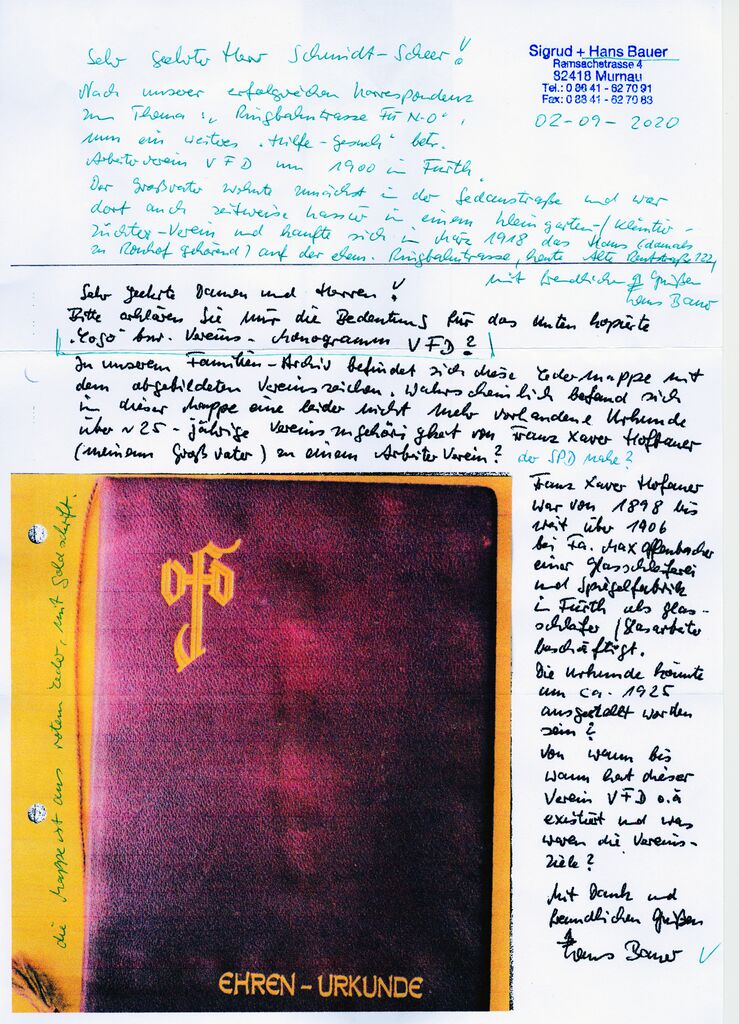 Sehr geehrter Herr Schmidt-Scheer!
Sigrud + Hans Bauer
Ramsachstrasse 4
82418 Murnau
Tel.: 0 88 41 - 62 70 91
Fax: 0 88 41 - 62 70 93
02-09-2020
Nach unserer erfolgreichen Korrespondenz
zum Thema: "Ringbahntrasse FÜ N-O",
nun ein weiteres "Hilfe-gesuch" betr.
Arbeiterverein VFD um 1900 in Fürth.
Der Großvater wohnte zunächst in der Sedanstraße und war
dort auch zeitweise Kassier in einem Kleingarten-/Kleintier-
züchter-Verein und kaufte sich im März 1918 das Haus (damals
zu Ronhof gehörend) auf der ehem. Ringbahntrasse, heute Alte Reutstraße 122,
mit freundlichen Grüßen
Hans Bauer
Sehr geehrte Damen und Herren!
Bitte erklären Sie mir die Bedeutung für das unten kopierte
"Logo" bzw. Vereins-Monogramm VFD?
In unserem Familien-Archiv befindet sich diese Ledermappe mit
dem abgebildeten Vereinszeichen. Wahrscheinlich befand sich
in dieser Mappe eine leider nicht mehr vorhandene Urkunde
über ~25-jährige Vereinszugehörigkeit von Franz Xaver Hofbauer
(meinem Großvater) zu einem Arbeiter Verein? der SPD nahe?
Franz Xaver
war von 1898 bis
weit über 1906
bei Fa. Max Offenbacher
einer Glasschleiferei
und Spiegelfabrik
in Fürth als Glas-
schleifer/Glasarbeiter
beschäftigt.
Die Urkunde könnte
um ca. 1925
ausgestellt worden
sein?
Von wann bis
wann hat dieser
Verein VFD o.ä
existiert und was
waren die Vereins-
ziele?
Mit Dank und
freundlichen Grüßen
Hans Bauer
die Mappe ist aus rotem Leder, mit Goldschrift.
EHREN-URKUNDE